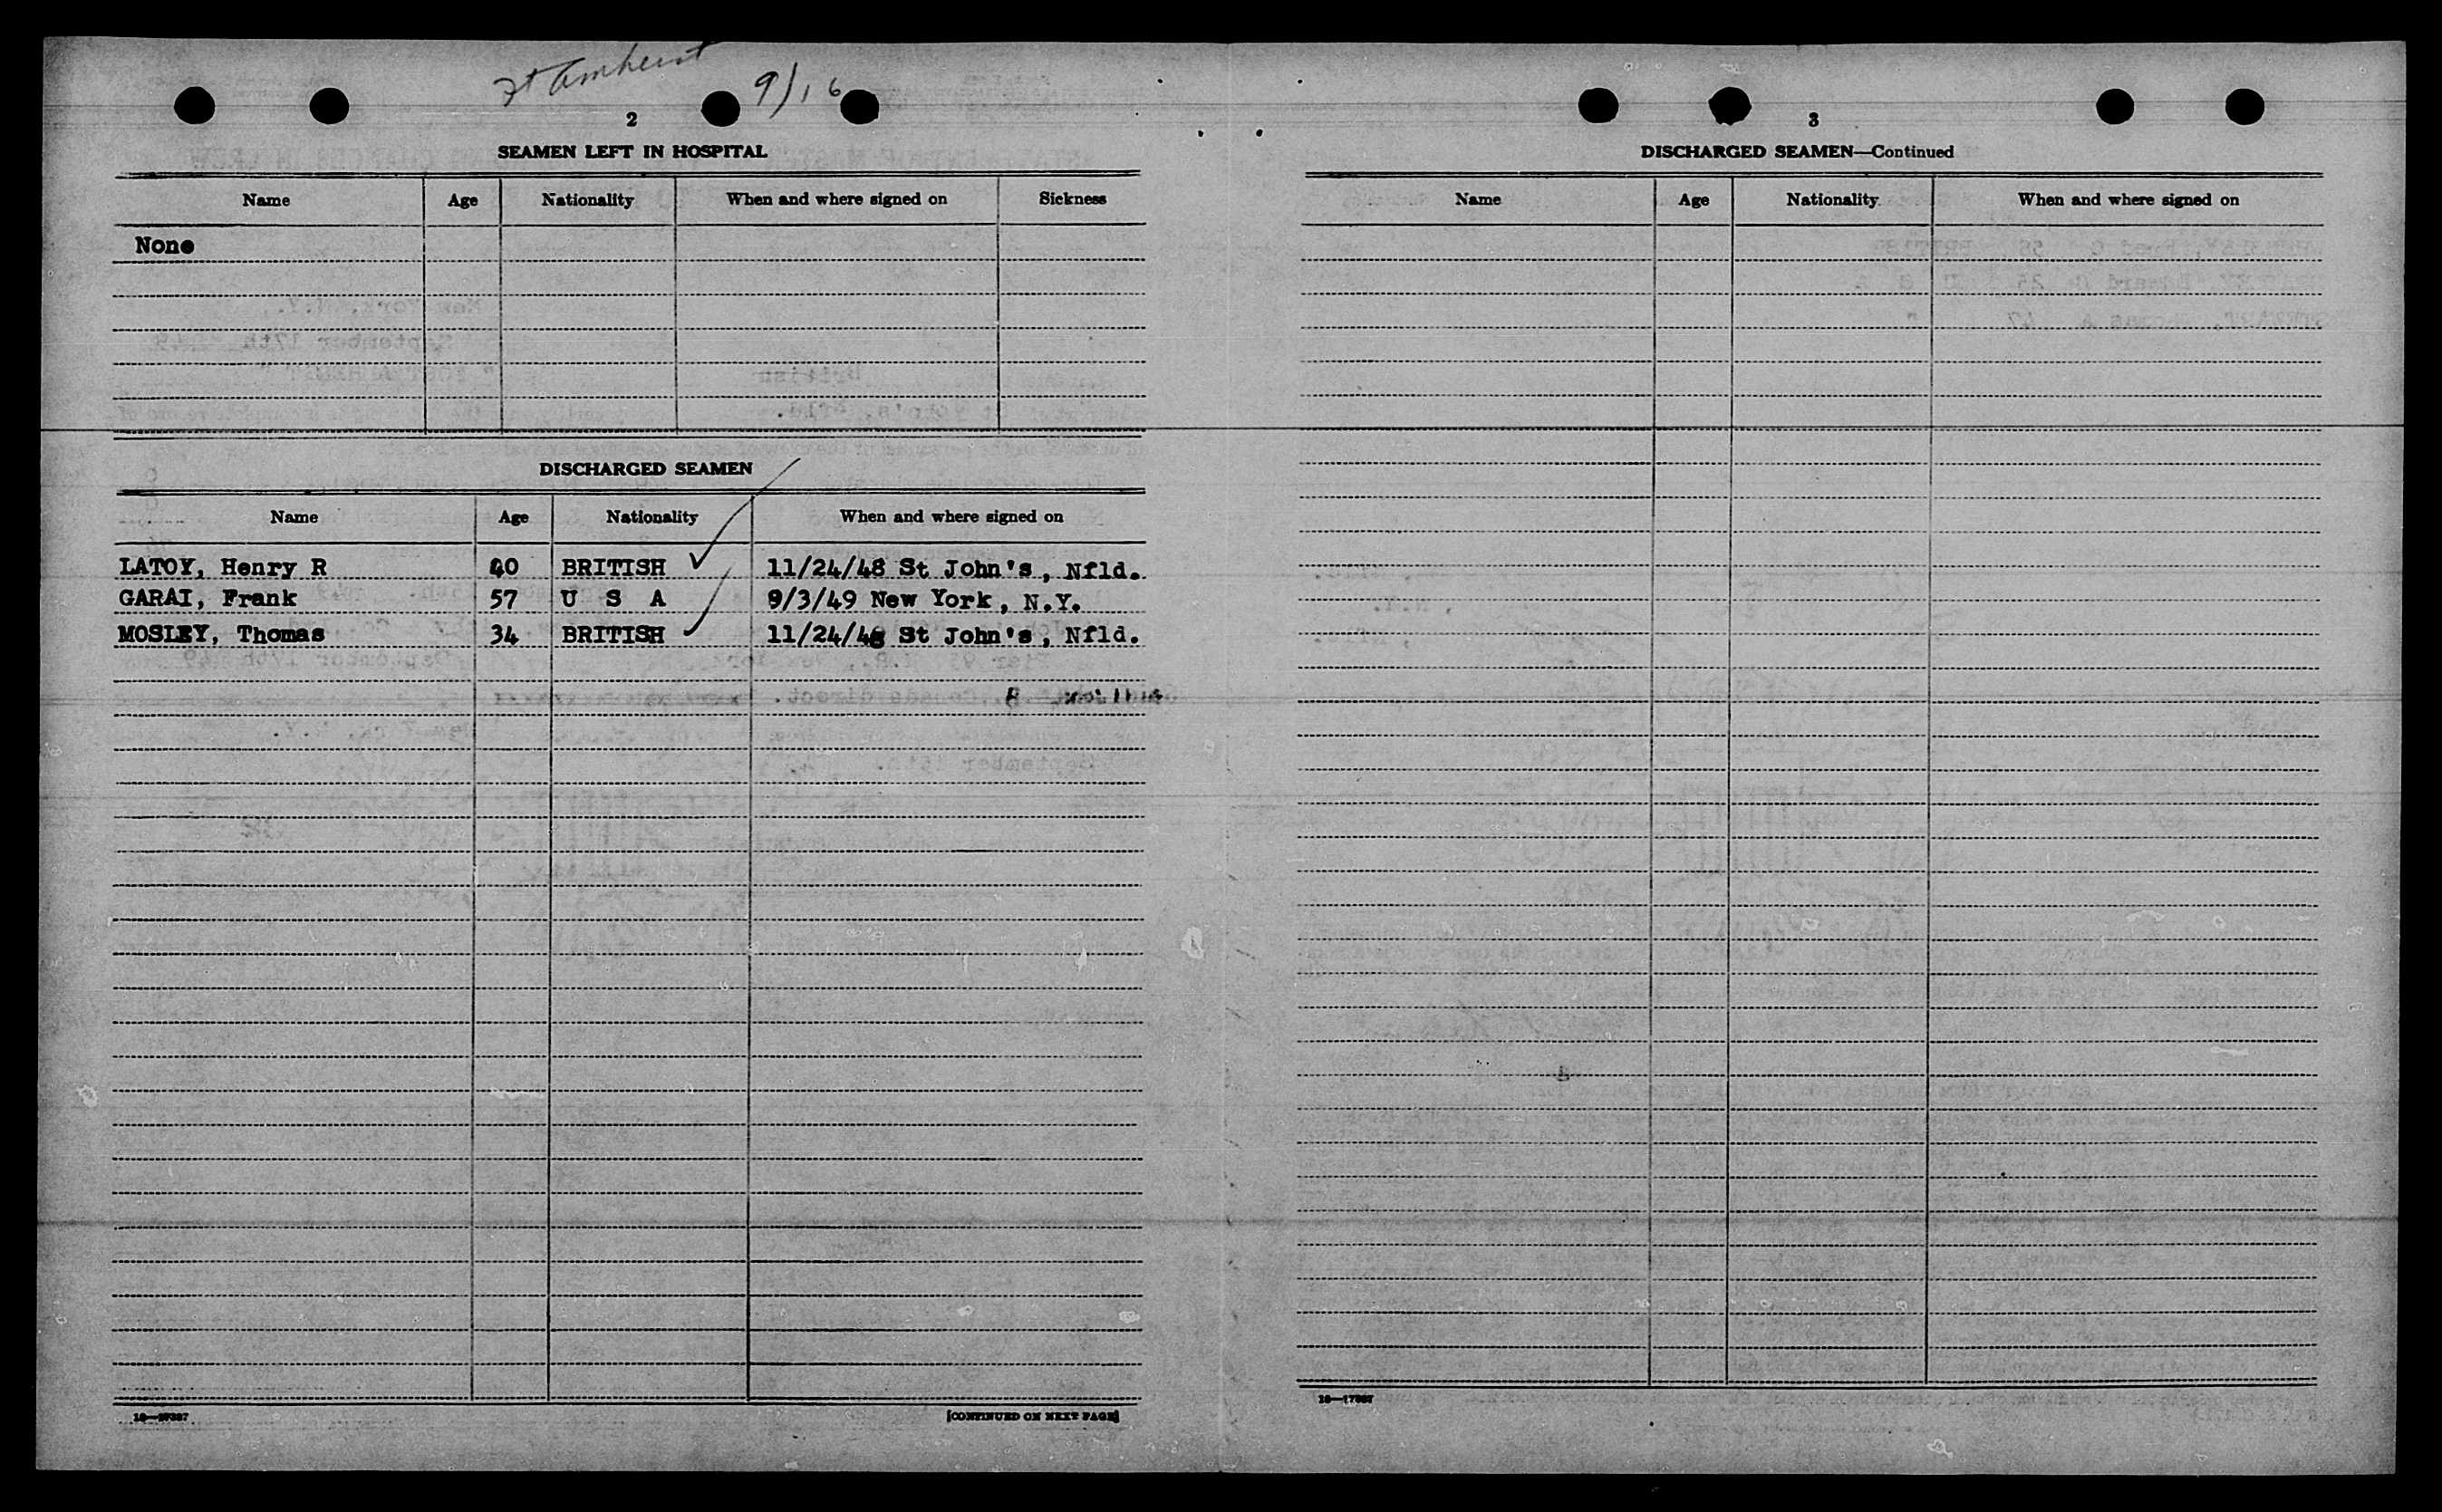 Ft Amherst 9/16
2
SEAMEN LEFT IN HOSPITAL
Name Age Nationality When and where signed on Sickness
None
DISCHARGED SEAMEN
Name Age Nationality When and where signed on
LATOY, Henry R 40 BRITISH 11/24/48 St John's, Nfld.
GARAI, Frank 57 U S A 9/3/49 New York, N.Y.
MOSLEY, Thomas 34 BRITISH 11/24/48 St John's, Nfld.
[CONTINUED ON NEXT PAGE]
3
DISCHARGED SEAMEN—Continued
Name Age Nationality When and where signed on